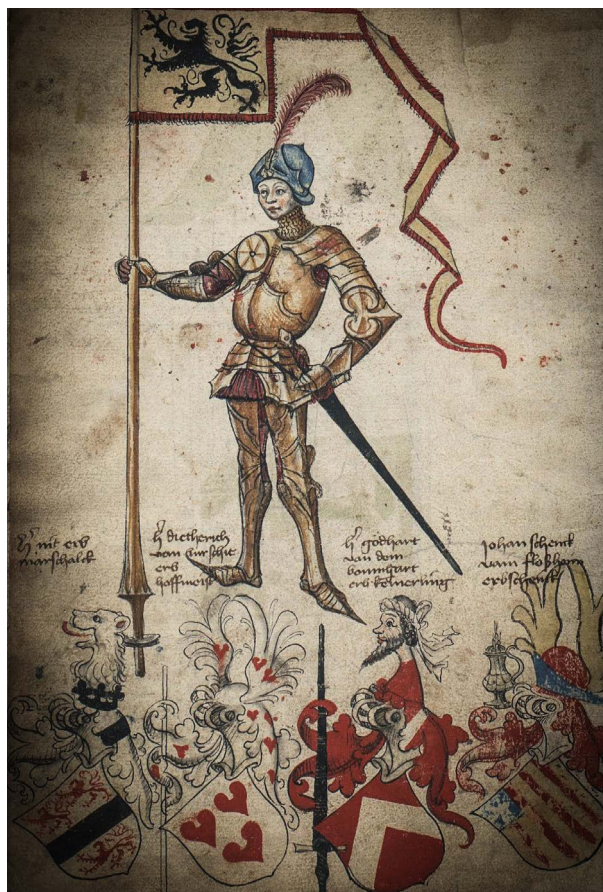 marschalck
h dietherich
van burschit
erb
hoffmeist
h godhart
van dem
boumhart
erb kemerling
Johan schenck
vam
erbschenck